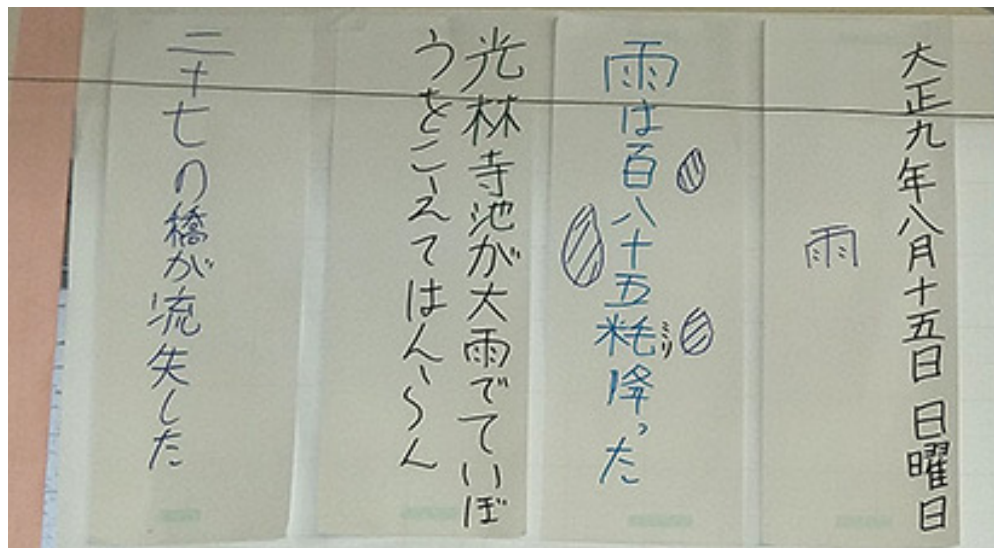 大正九年八月十五日 日曜日
雨
雨は百八十五粍降った
ミリ
光林寺池が大雨でていぼ
うをこえてはんらん
二十七の橋が流失した